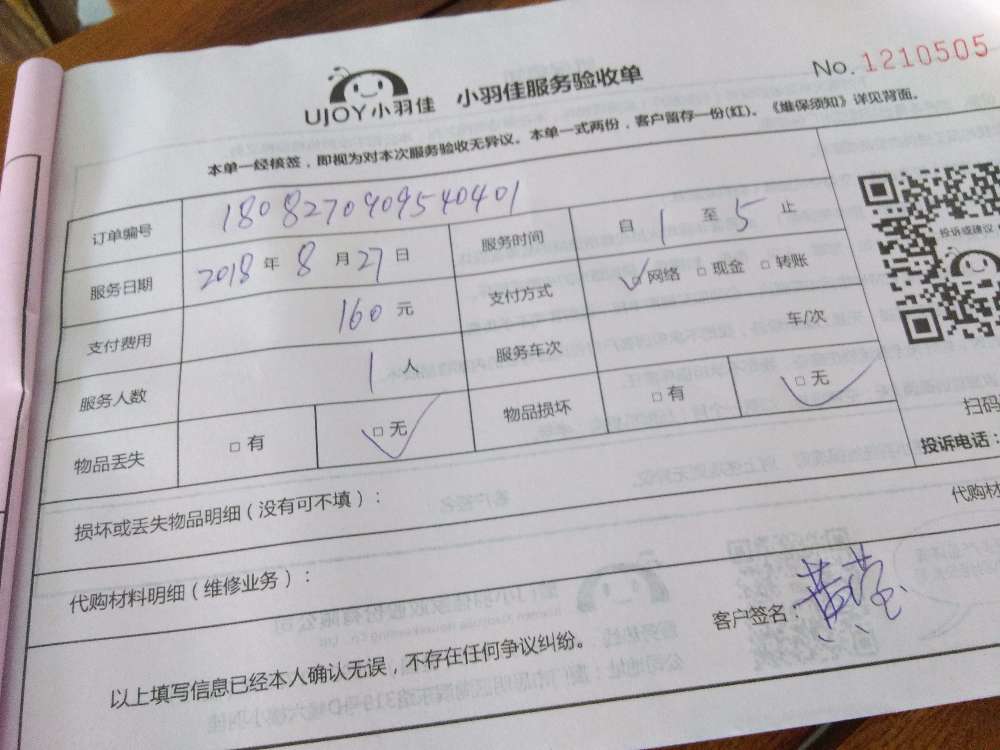 UJOY小羽佳 小羽佳服务验收单 No. 1210505
本单一经核签，即视为对本次服务验收无异议。本单一式两份，客户留存一份(红)。《维保须知》详见背面。
订单编号 180827090954 0401
服务时间 自 1 至 5 止
服务日期 2018 年 8 月 27 日
支付方式 ☑网络 □现金 □转账
支付费用 160 元
服务车次 车/次
服务人数 1 人
物品丢失 □有 ☑无
物品损坏 □有 ☑无
投诉或建议
扫码
投诉电话：
损坏或丢失物品明细（没有可不填）：
代购材
代购材料明细（维修业务）：
客户签名：黄莹
以上填写信息已经本人确认无误，不存在任何争议纠纷。